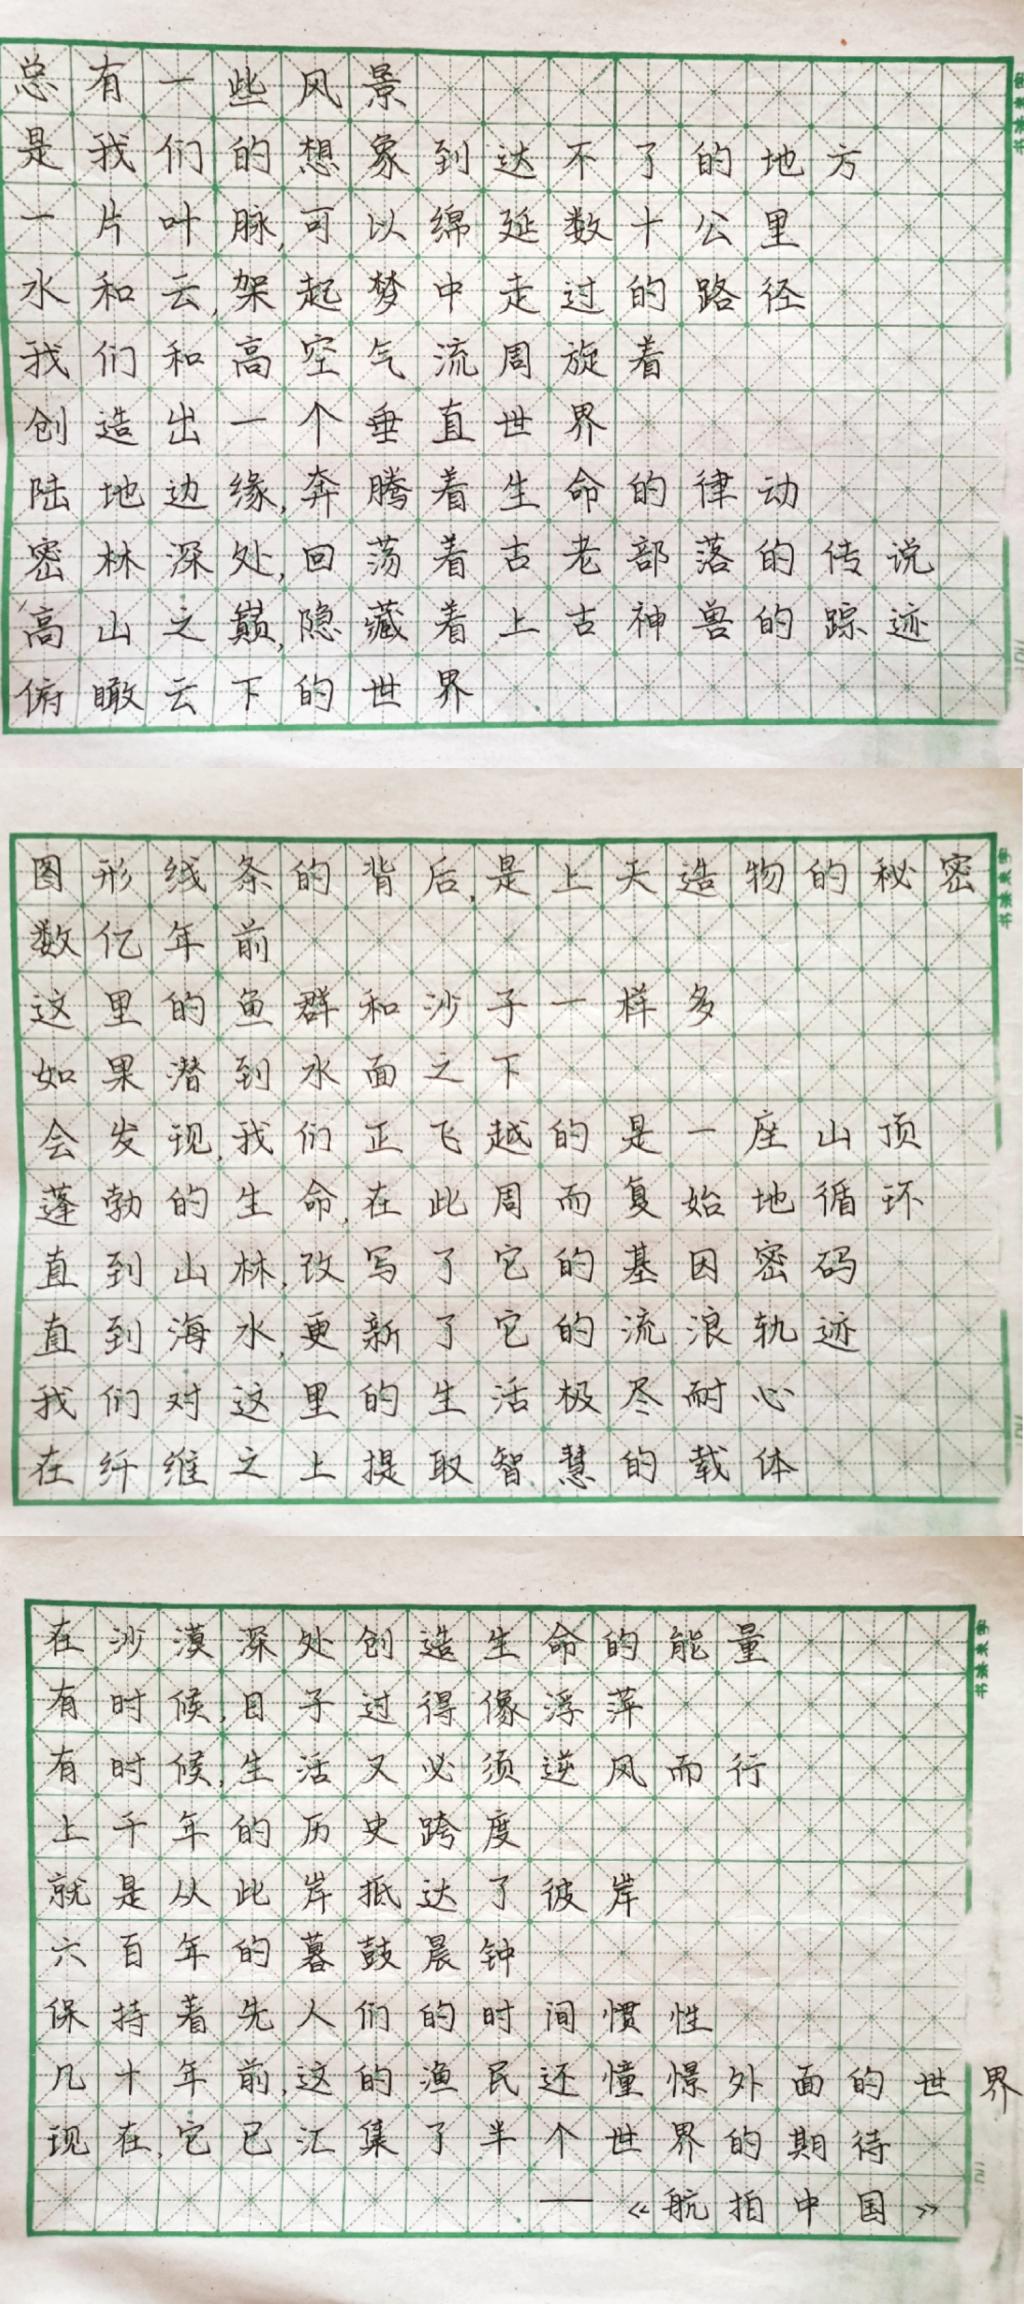 总有一些风景
是我们的想象到达不了的地方
一片叶脉,可以绵延数十公里
水和云,架起梦中走过的路径
我们和高空气流周旋着
创造出一个垂直世界
陆地边缘,奔腾着生命的律动
密林深处,回荡着古老部落的传说
高山之巅,隐藏着上古神兽的踪迹
俯瞰云下的世界
图形线条的背后,是上天造物的秘密
数亿年前
这里的鱼群和沙子一样多
如果潜到水面之下
会发现,我们正飞越的是一座山顶
蓬勃的生命,在此周而复始地循环
直到山林,改写了它的基因密码
直到海水,更新了它的流浪轨迹
我们对这里的生活极尽耐心
在纤维之上提取智慧的载体
在沙漠深处创造生命的能量
有时候,日子过得像浮萍
有时候,生活又必须逆风而行
上千年的历史跨度
就是从此岸抵达了彼岸
六百年的暮鼓晨钟
保持着先人们的时间惯性
几十年前,这的渔民还憧憬外面的世界
现在,它已汇集了半个世界的期待
——《航拍中国》